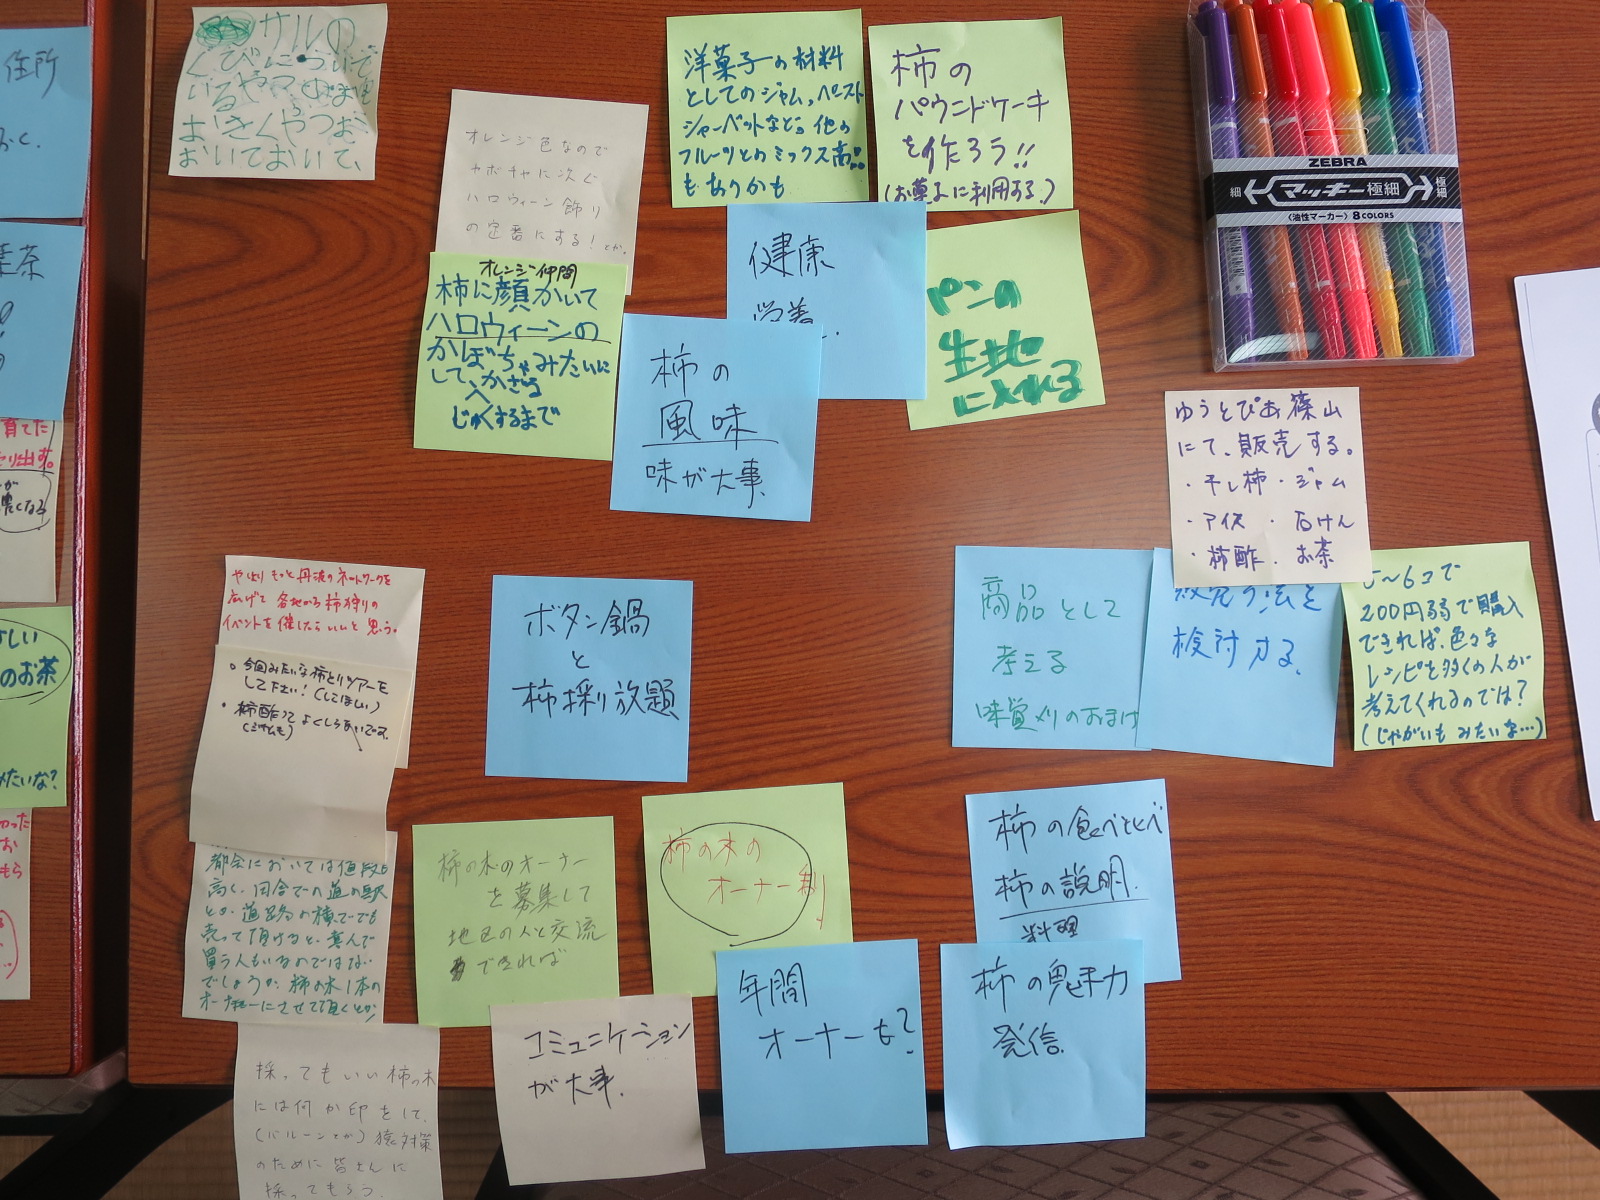 サルの
くびについて
いるやつ
おいておいて、
オレンジ色なので
カボチャに次ぐ
ハロウィーン飾り
の定番にする！とか。
オレンジ仲間
柿に顔かいて
ハロウィーンの
かぼちゃみたいに
して
かざる
じゅくすまで
洋菓子の材料
としてのジャム、ペースト
シャーベットなど。他の
フルーツとのミックス
もありかも
柿の
パウンドケーキ
を作ろう!!
(お菓子に利用する。)
健康
栄養.
パンの
生地
に入れる
柿の
風味
味が大事、
ZEBRA
細
マッキー極細
極細
〈油性マーカー〉8 COLORS
ゆうとぴあ篠山
にて、販売する。
・干し柿・ジャム
・アイス・石けん
・柿酢・お茶
商品として
考える
味覚メリのおまけ
販売方法を
検討する。
5〜6コで
200円弱で購入
できれば、色々な
レシピを多くの人が
考えてくれるのでは?
(じゃがいもみたいな…)
やはりもっと丹波のネットワークを
広げて各地から柿狩りの
イベントを催したらいいと思う。
○今回みたいな柿とりツアーを
して下さい！(してほしい)
・柿酢って よくしらないです。
(ジャムも)
ボタン鍋
と
柿採り放題
都会においては値段も
高く、田舎での道の駅
とか道路の横ででも
売って頂けると、喜んで
買う人もいるのではない
でしょうか。柿の木1本の
オーナーにさせて頂くとか
柿の木のオーナー
を募集して
地色の人と交流
できれば
柿の木の
オーナー制
柿の食べくらべ
柿の説明.
料理
採ってもいい柿の木
には何か印をして、
(バルーンとか)猿対策
のために皆さんに
採ってもらう.
コミュニケーション
が大事.
年間
オーナーも?
柿の魅力
発信.
住所
茶
育てた
り出す。
が
しい
のお茶
みたいな?
った
お
もら